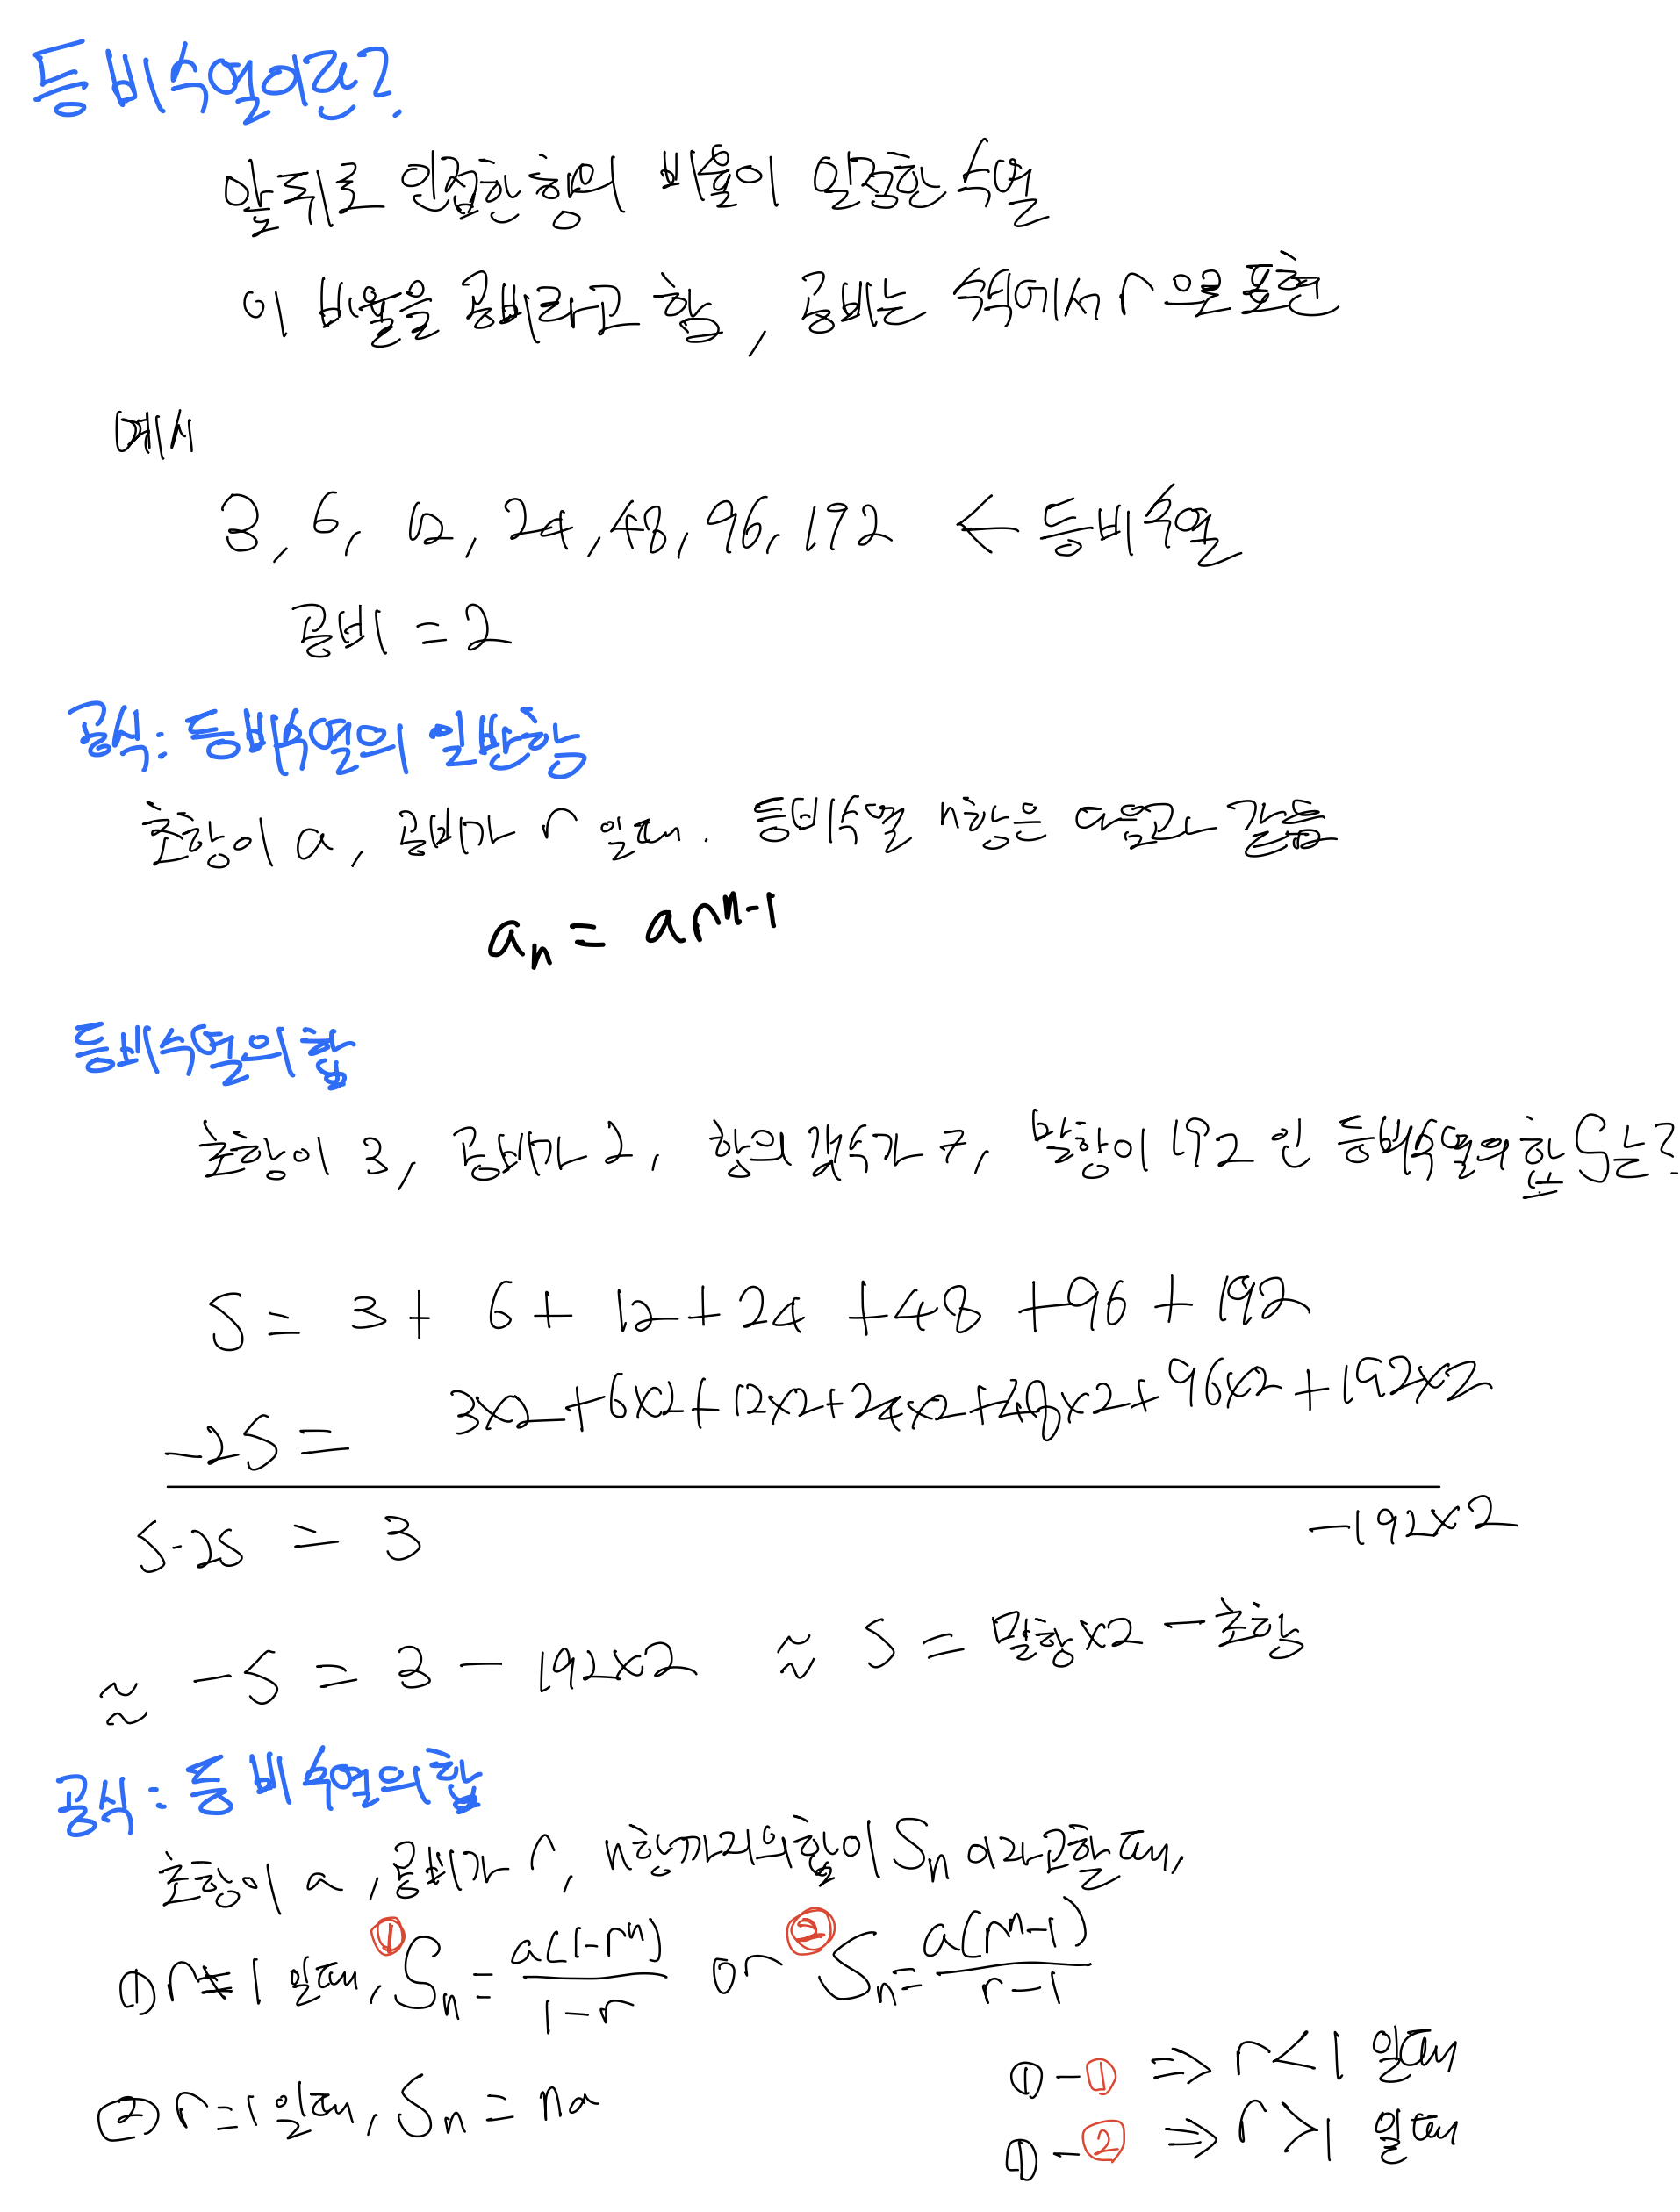 등비수열이란?
앞뒤로 인접한 항의 비율이 일정한 수열
이 비율을 공비라고 함, 공비는 수식에서 r으로 표현
예시
3, 6, 12, 24, 48, 96, 192 ← 등비수열
공비 = 2
공식: 등비수열의 일반항
초항이 a, 공비가 r 일때. 등비수열 n항은 다음과 같음
aₙ = arⁿ⁻¹
등비수열의 합
초항이 3, 공비가 2, 항의 갯수가 7, 말항이 192 인 등비수열의 합 S는?
S = 3 + 6 + 12 + 24 + 48 + 96 + 192
-2S = 3x2+6x2+12x2+24x2+48x2+96x2+192x2
S-2S = 3 -192x2
≈ -S = 3 - 192x2 ≈ S =말항x2 - 초항
공식: 등비수열의 합
초항이 a, 공비가 r, n항까지의 합이 Sₙ 이라고 할 때,
① r≠1 일때, ① Sₙ = a(1-rⁿ)/1-r or ② Sₙ = a(rⁿ-1)/r-1
② r=1 일때, Sₙ = na
①-① ⇒ r<1 일때
①-② ⇒ r>1 일때